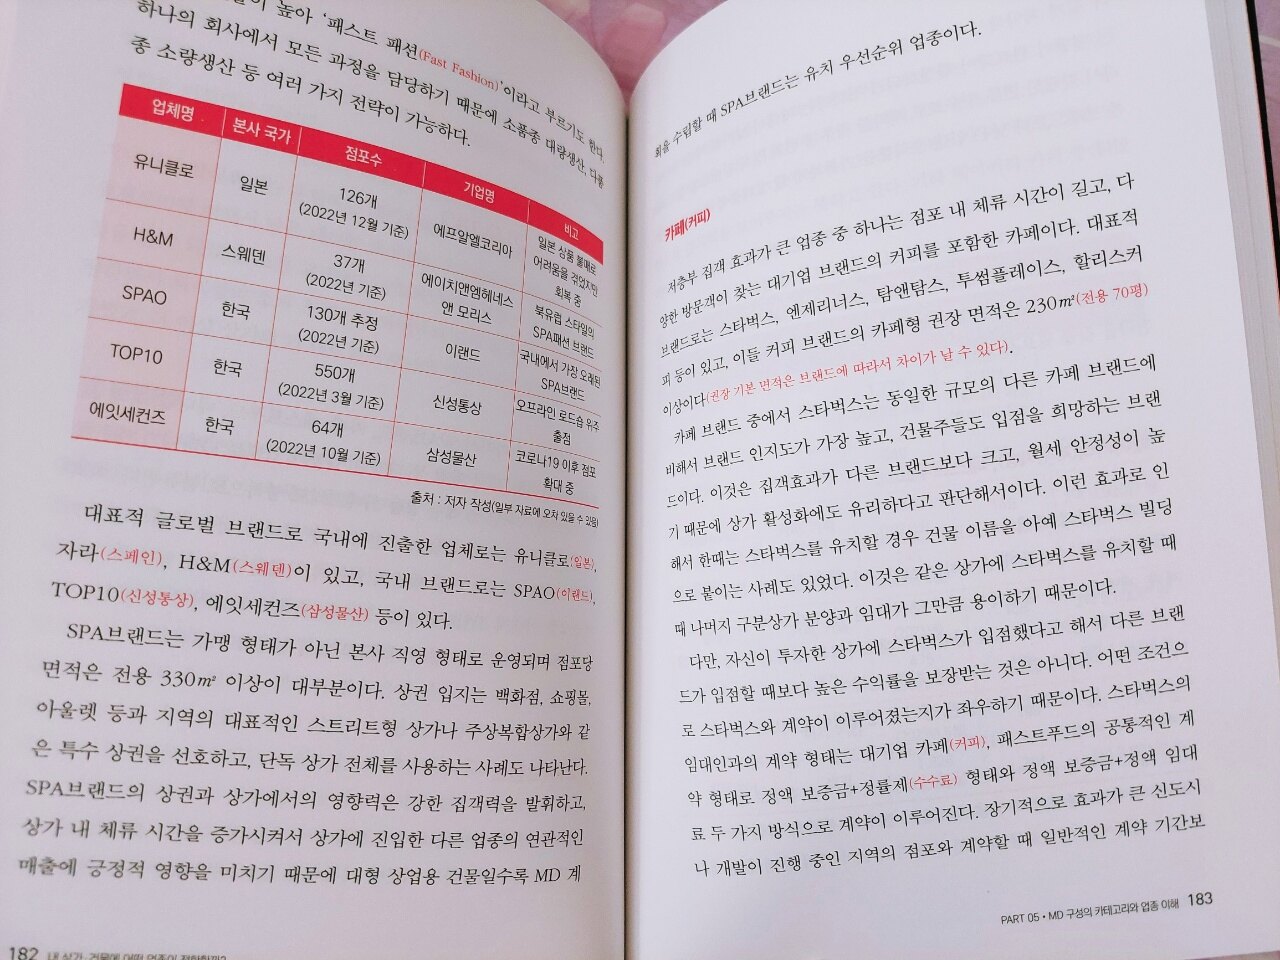 높아 '패스트 패션(Fast Fashion)'이라고 부르기도 한다.
하나의 회사에서 모든 과정을 담당하기 때문에 소품종 대량생산, 다품
종 소량생산 등 여러 가지 전략이 가능하다.
업체명 본사 국가 점포수 기업명 비고
유니클로 일본 126개 (2022년 12월 기준) 에프알엘코리아 일본 상품 불매로 어려움을 겪었지만 회복 중
H&M 스웨덴 37개 (2022년 기준) 에이치앤엠헤네스 앤 모리스 북유럽 스타일의 SPA패션 브랜드
SPAO 한국 130개 추정 (2022년 기준) 이랜드 국내에서 가장 오래된 SPA브랜드
TOP10 한국 550개 (2022년 3월 기준) 신성통상 오프라인 로드숍 위주 출점
에잇세컨즈 한국 64개 (2022년 10월 기준) 삼성물산 코로나19 이후 점포 확대 중
출처 : 저자 작성(일부 자료에 오차 있을 수 있음)
대표적 글로벌 브랜드로 국내에 진출한 업체로는 유니클로(일본),
자라(스페인), H&M(스웨덴)이 있고, 국내 브랜드로는 SPAO(이랜드),
TOP10(신성통상), 에잇세컨즈(삼성물산) 등이 있다.
SPA브랜드는 가맹 형태가 아닌 본사 직영 형태로 운영되며 점포당
면적은 전용 330㎡ 이상이 대부분이다. 상권 입지는 백화점, 쇼핑몰,
아울렛 등과 지역의 대표적인 스트리트형 상가나 주상복합상가와 같
은 특수 상권을 선호하고, 단독 상가 전체를 사용하는 사례도 나타난다.
SPA브랜드의 상권과 상가에서의 영향력은 강한 집객력을 발휘하고,
상가 내 체류 시간을 증가시켜서 상가에 진입한 다른 업종의 연관적인
매출에 긍정적 영향을 미치기 때문에 대형 상업용 건물일수록 MD 계
182
획을 수립할 때 SPA브랜드는 유치 우선순위 업종이다.
카페(커피)
저층부 집객 효과가 큰 업종 중 하나는 점포 내 체류 시간이 길고, 다
양한 방문객이 찾는 대기업 브랜드의 커피를 포함한 카페이다. 대표적
브랜드로는 스타벅스, 엔제리너스, 탐앤탐스, 투썸플레이스, 할리스커
피 등이 있고, 이들 커피 브랜드의 카페형 권장 면적은 230㎡(전용 70평)
이상이다(권장 기본 면적은 브랜드에 따라서 차이가 날 수 있다).
카페 브랜드 중에서 스타벅스는 동일한 규모의 다른 카페 브랜드에
비해서 브랜드 인지도가 가장 높고, 건물주들도 입점을 희망하는 브랜
드이다. 이것은 집객효과가 다른 브랜드보다 크고, 월세 안정성이 높
기 때문에 상가 활성화에도 유리하다고 판단해서이다. 이런 효과로 인
해서 한때는 스타벅스를 유치할 경우 건물 이름을 아예 스타벅스 빌딩
으로 붙이는 사례도 있었다. 이것은 같은 상가에 스타벅스를 유치할 때
때 나머지 구분상가 분양과 임대가 그만큼 용이하기 때문이다.
다만, 자신이 투자한 상가에 스타벅스가 입점했다고 해서 다른 브랜
드가 입점할 때보다 높은 수익률을 보장받는 것은 아니다. 어떤 조건으
로 스타벅스와 계약이 이루어졌는지가 좌우하기 때문이다. 스타벅스의
임대인과의 계약 형태는 대기업 카페(커피), 패스트푸드의 공통적인 계
약 형태로 정액 보증금+정률제(수수료) 형태와 정액 보증금+정액 임대
료 두 가지 방식으로 계약이 이루어진다. 장기적으로 효과가 큰 신도시
나 개발이 진행 중인 지역의 점포와 계약할 때 일반적인 계약 기간보
PART 05 • MD 구성의 카테고리와 업종 이해 183